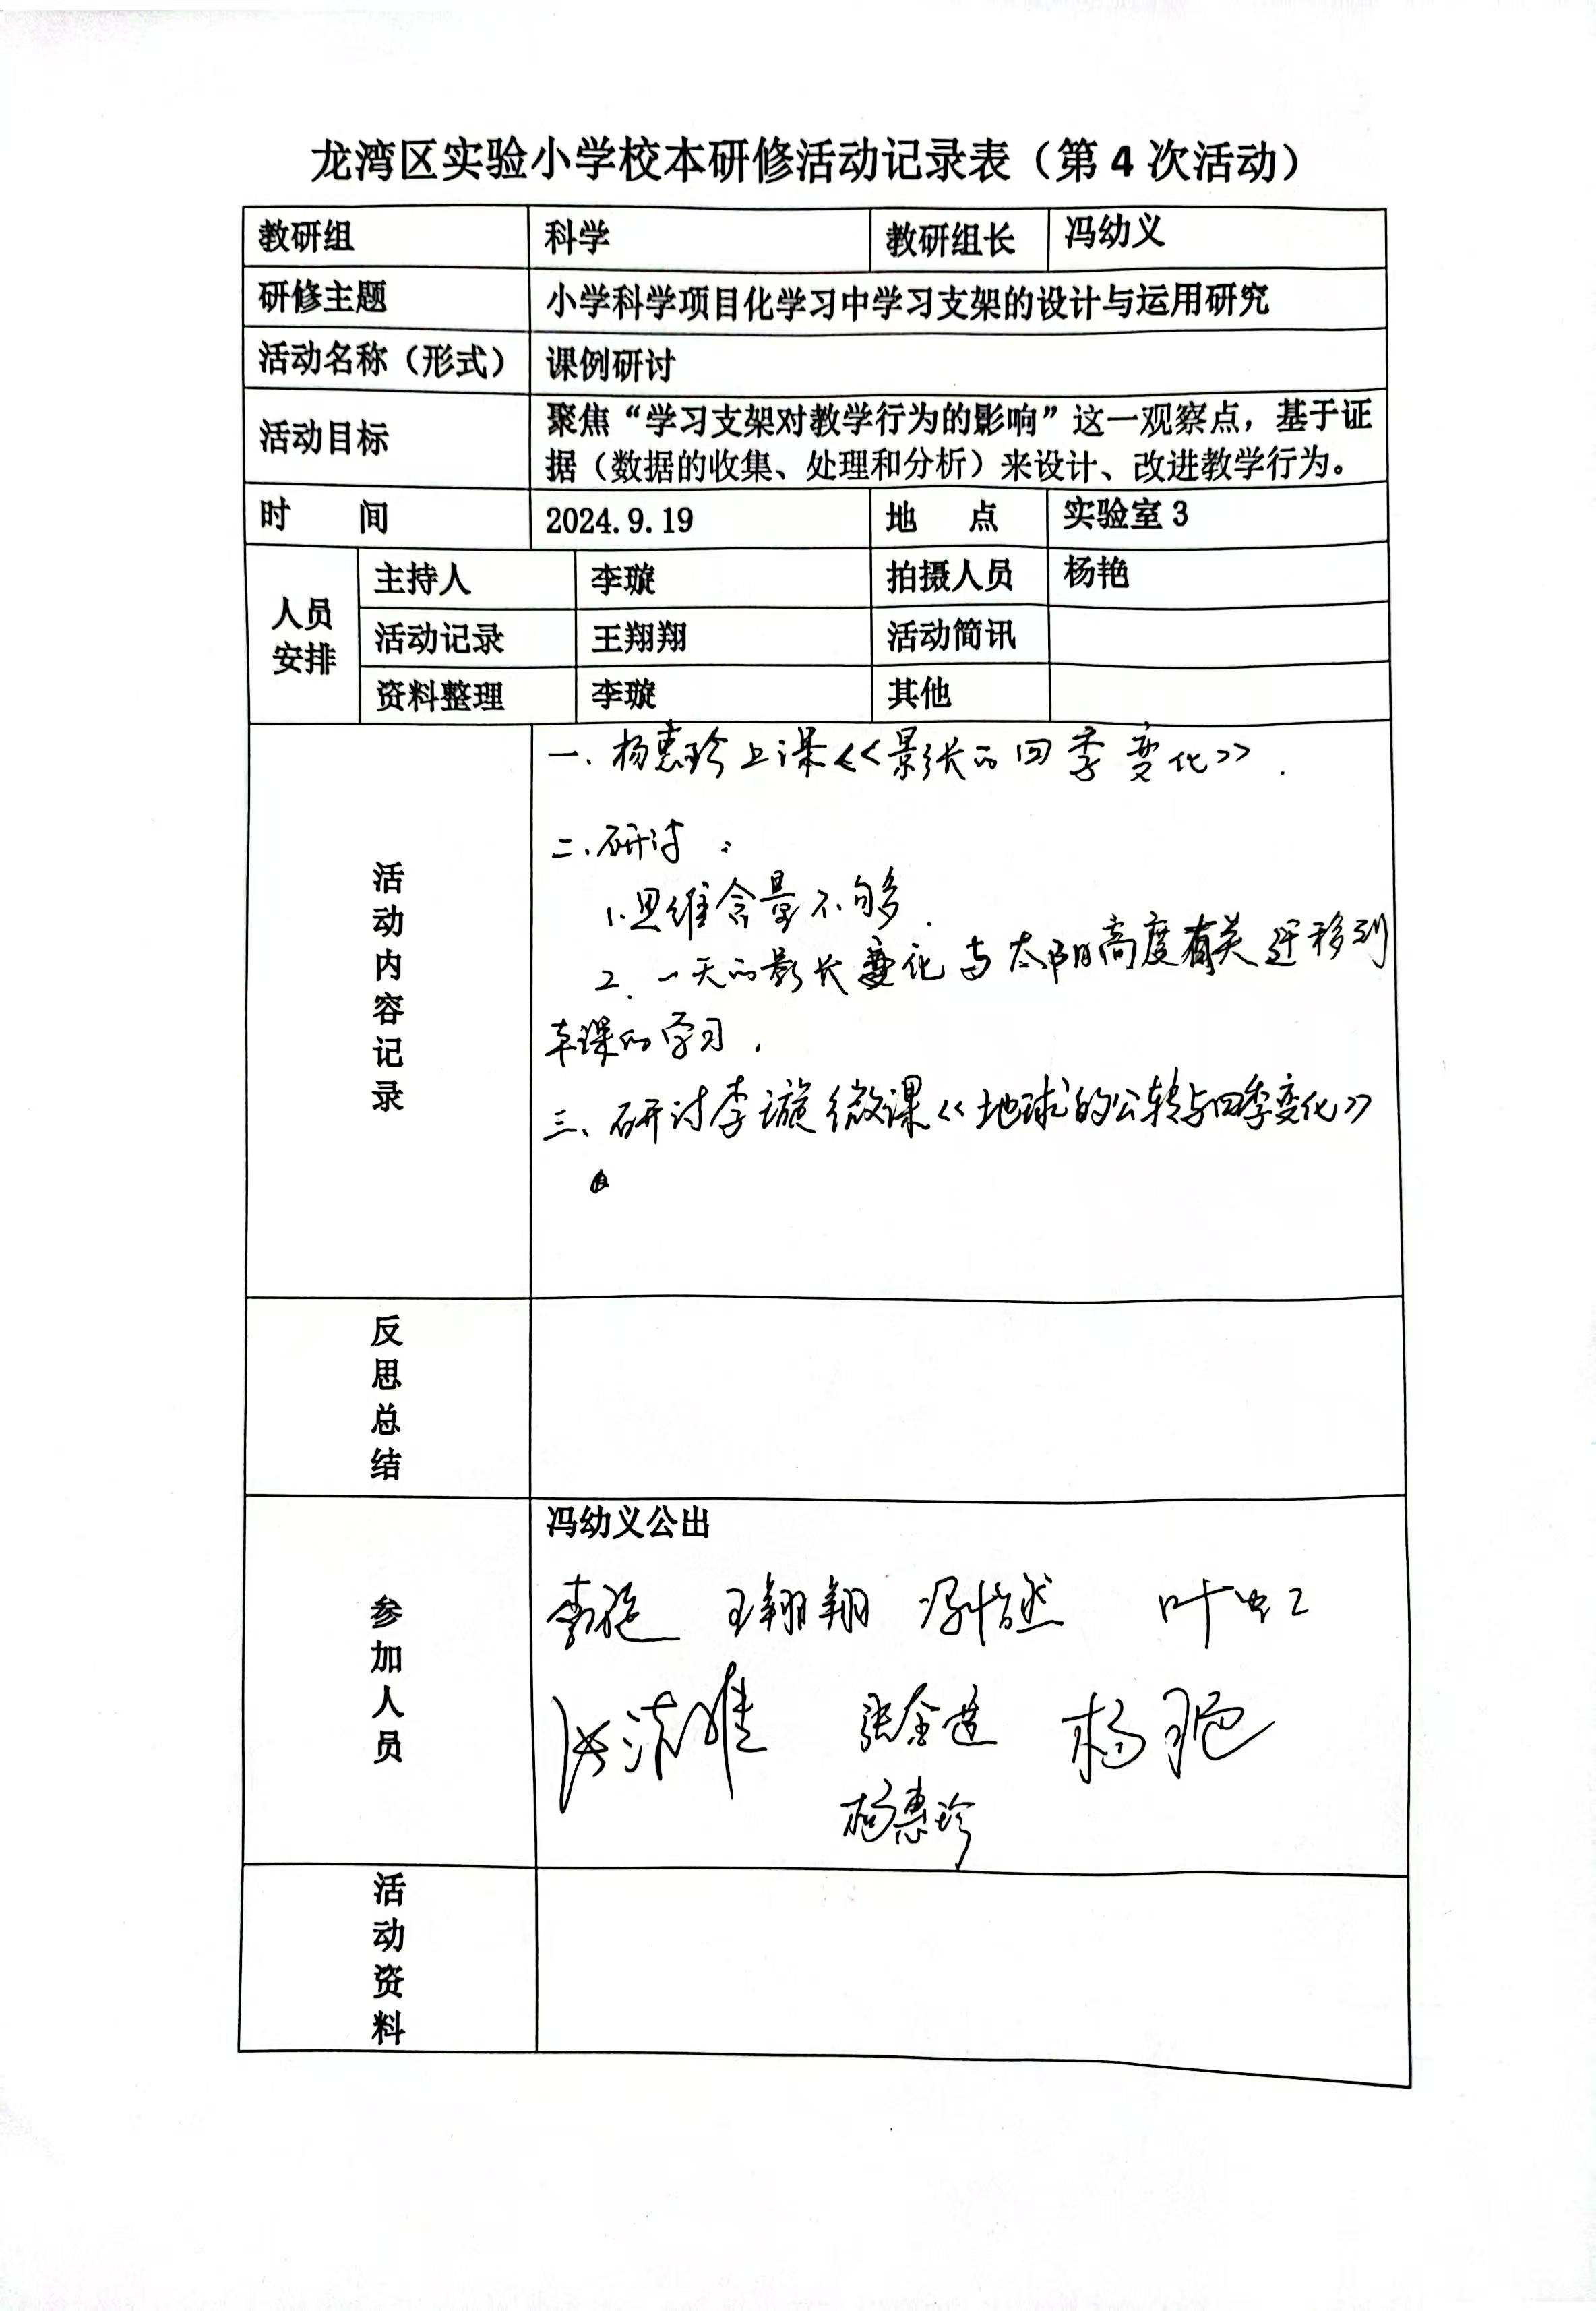 龙湾区实验小学校本研修活动记录表（第 4 次活动）
教研组 科学 教研组长 冯幼义
研修主题 小学科学项目化学习中学习支架的设计与运用研究
活动名称（形式） 课例研讨
活动目标 聚焦“学习支架对教学行为的影响”这一观察点，基于证
据（数据的收集、处理和分析）来设计、改进教学行为。
时 间 2024.9.19 地 点 实验室 3
人员
安排
主持人 李璇 拍摄人员 杨艳
活动记录 王翔翔 活动简讯
资料整理 李璇 其他
活动内容记录
一、杨惠珍上课《影长的四季变化》.
二、研讨：
1.思维含量不够.
2. 一天的影长变化与太阳高度有关迁移到
本课的学习.
三、研讨李璇微课《地球的公转与四季变化》
反思总结
参加人员
冯幼义公出
李璇 王翔翔 叶虹
杨艳
杨惠珍
活动资料